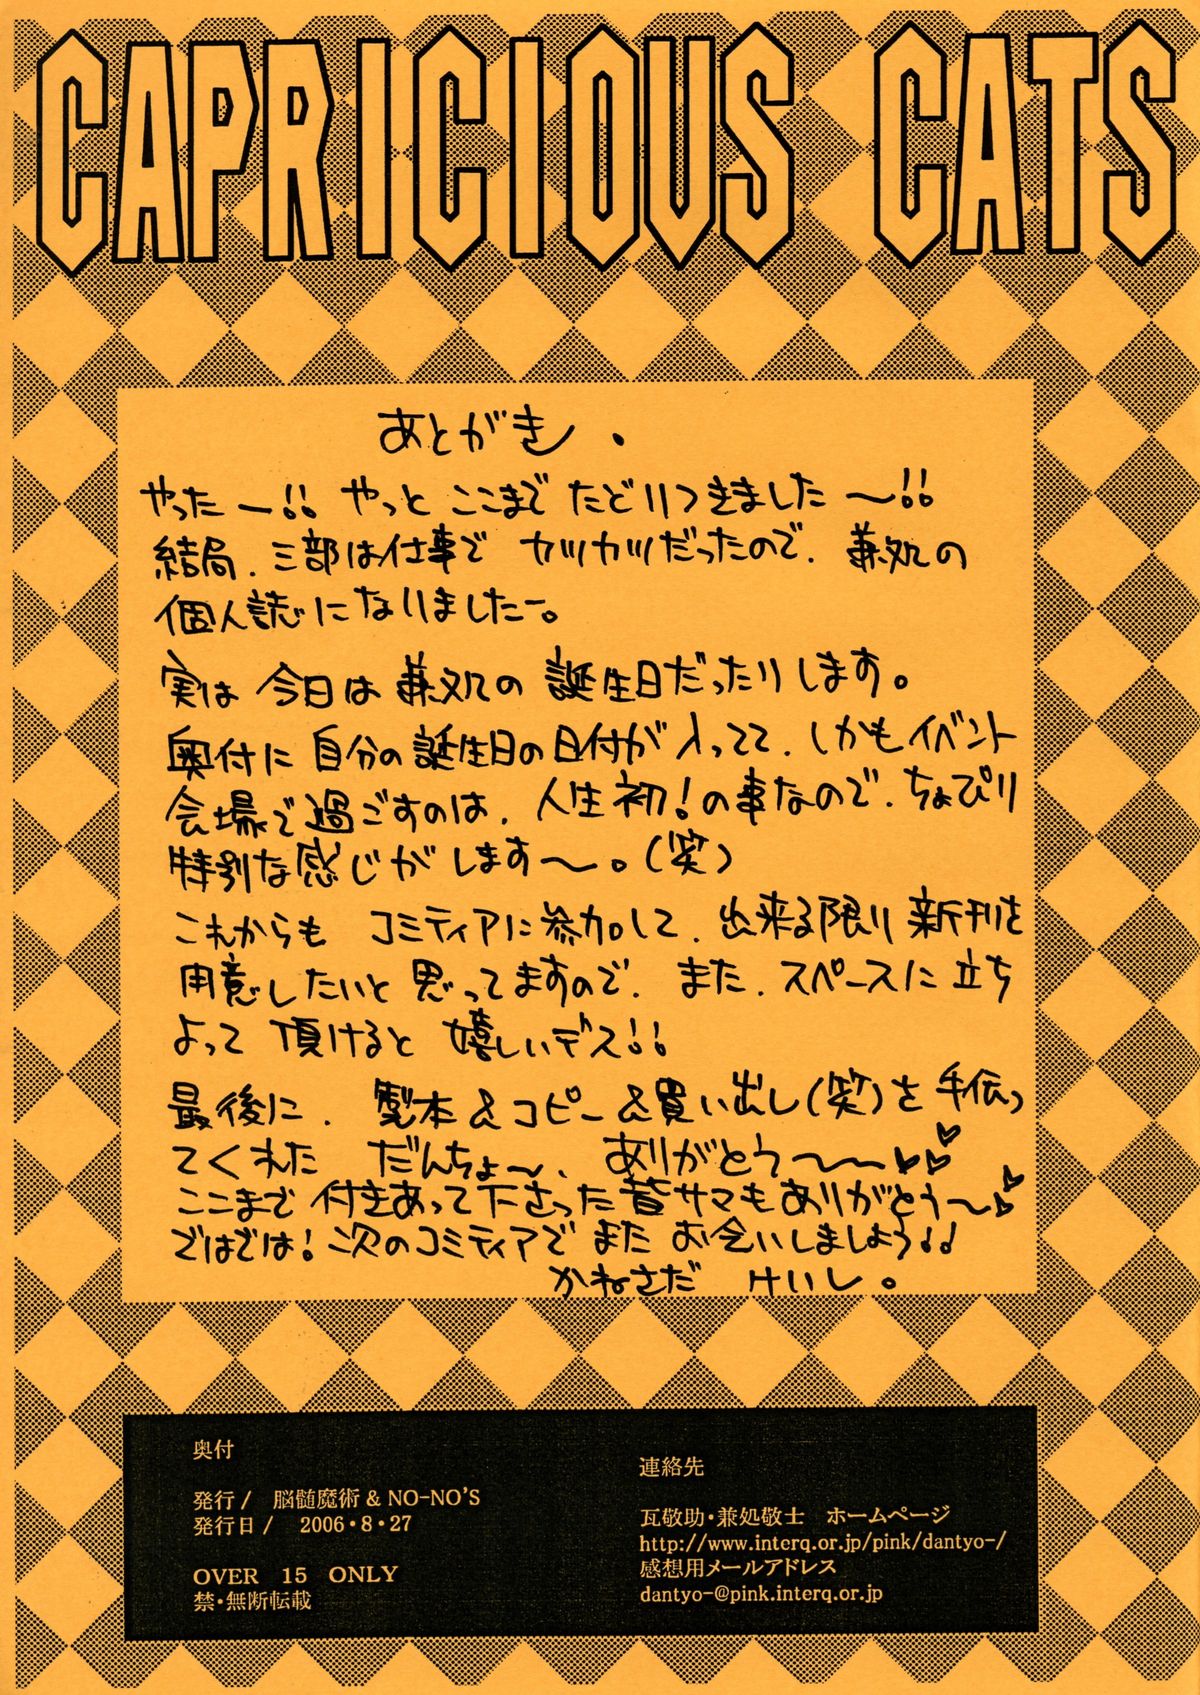 CAPRICIOUS CATS
あとがき.
やったー!! やっと ここまで たどりつきました〜!!
結局、三部は仕事で カツカツだったので、兼処の
個人誌になりましたー。
実は 今日は 兼処の 誕生日だったりします。
奥付に 自分の誕生日の日付が入ってて、しかもイベント
会場で過ごすのは、人生初!の事なので、ちょぴり
特別な感じがします〜。(笑)
これからも コミティアに参加して、出来る限り 新刊を
用意したいと 思ってますので、また、スペースに立ち
よって 頂けると 嬉しいデス!!
最後に、製本&コピー&買い出し(笑)を 手伝っ
てくれた だんちょ〜、ありがとう〜〜♥♥
ここまで 付きあって下さった皆サマもありがとう〜♥
ではでは! 次のコミティアで また お会いしましょう!!
かねさだ けいし。
奥付
発行/ 脳髄魔術 & NO-NO'S
発行日/ 2006・8・27
OVER 15 ONLY
禁・無断転載
連絡先
瓦敬助・兼処敬士 ホームページ
http://www.interq.or.jp/pink/dantyo-/
感想用メールアドレス
dantyo-@pink.interq.or.jp